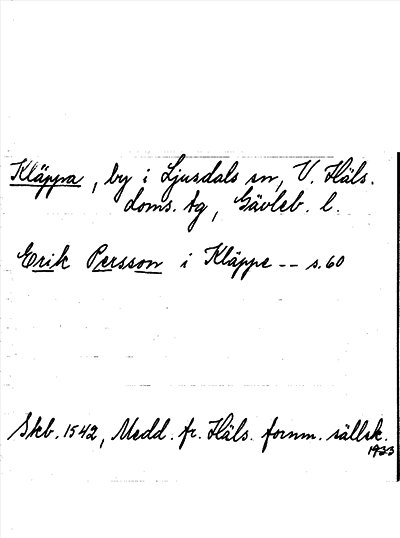 Kläppa, by i Ljusdals sn, V. Häls.
doms. tg, Gävleb. l.
Erik Persson i Kläppe -- s. 60
Skb. 1542, Medd. fr. Häls. fornm. sällsk.
1933